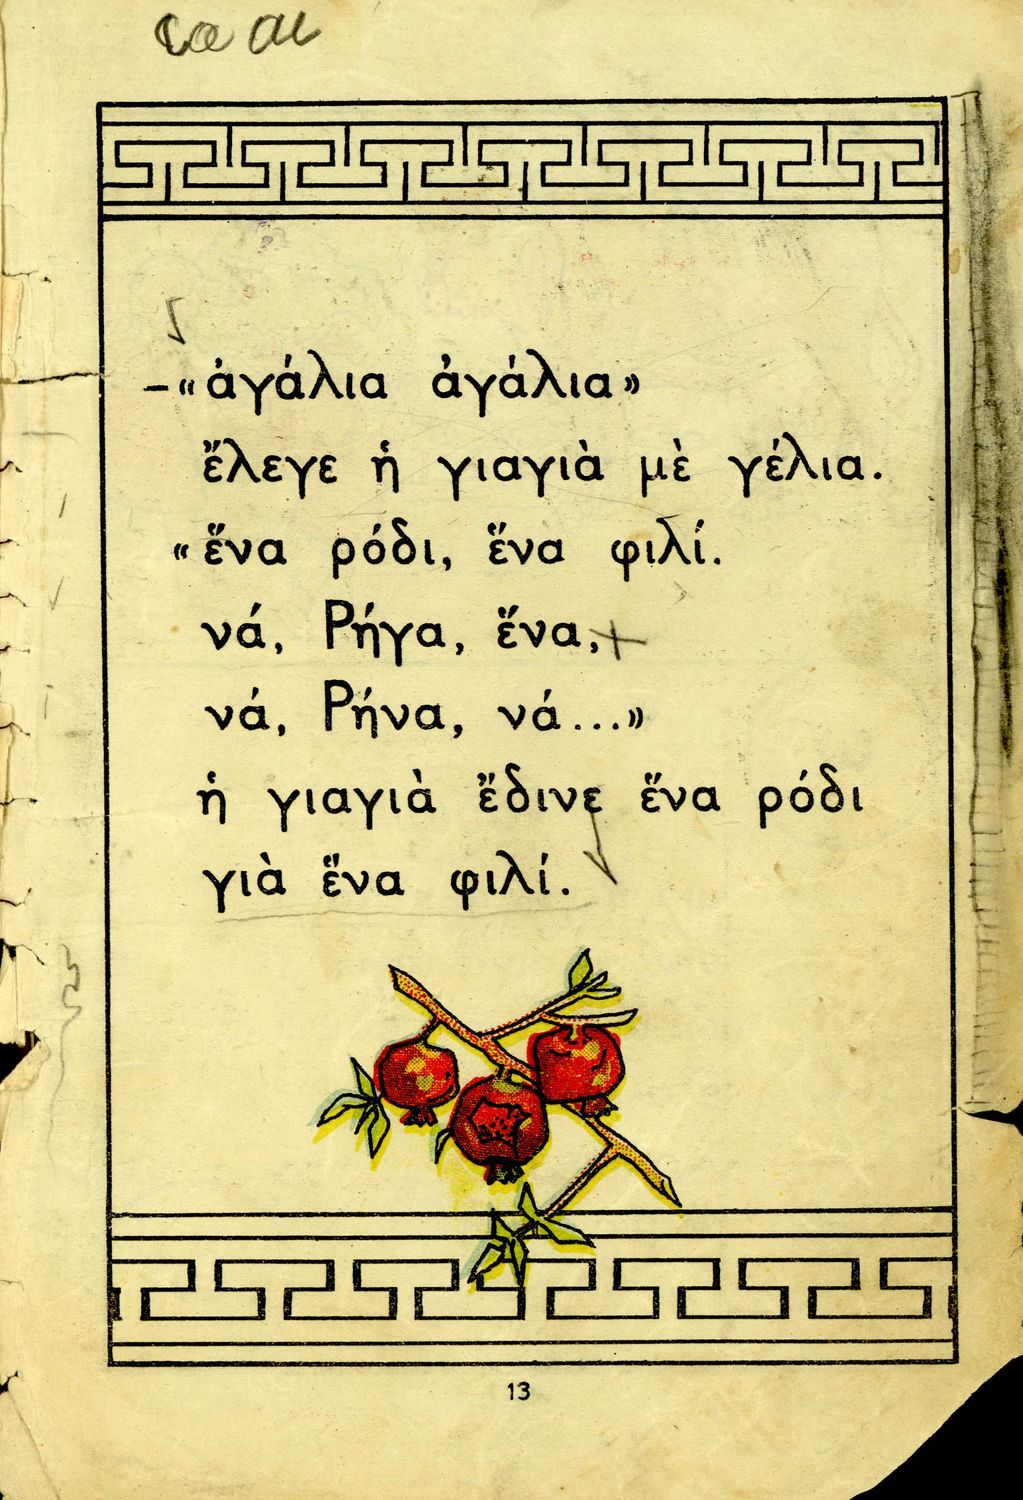 –«ἀγάλια ἀγάλια»
ἔλεγε ἡ γιαγιὰ μὲ γέλια.
«ἕνα ρόδι, ἕνα φιλί.
νά, Ρήγα, ἕνα,
νά, Ρήνα, νά...»
ἡ γιαγιὰ ἔδινε ἕνα ρόδι
γιὰ ἕνα φιλί.
13